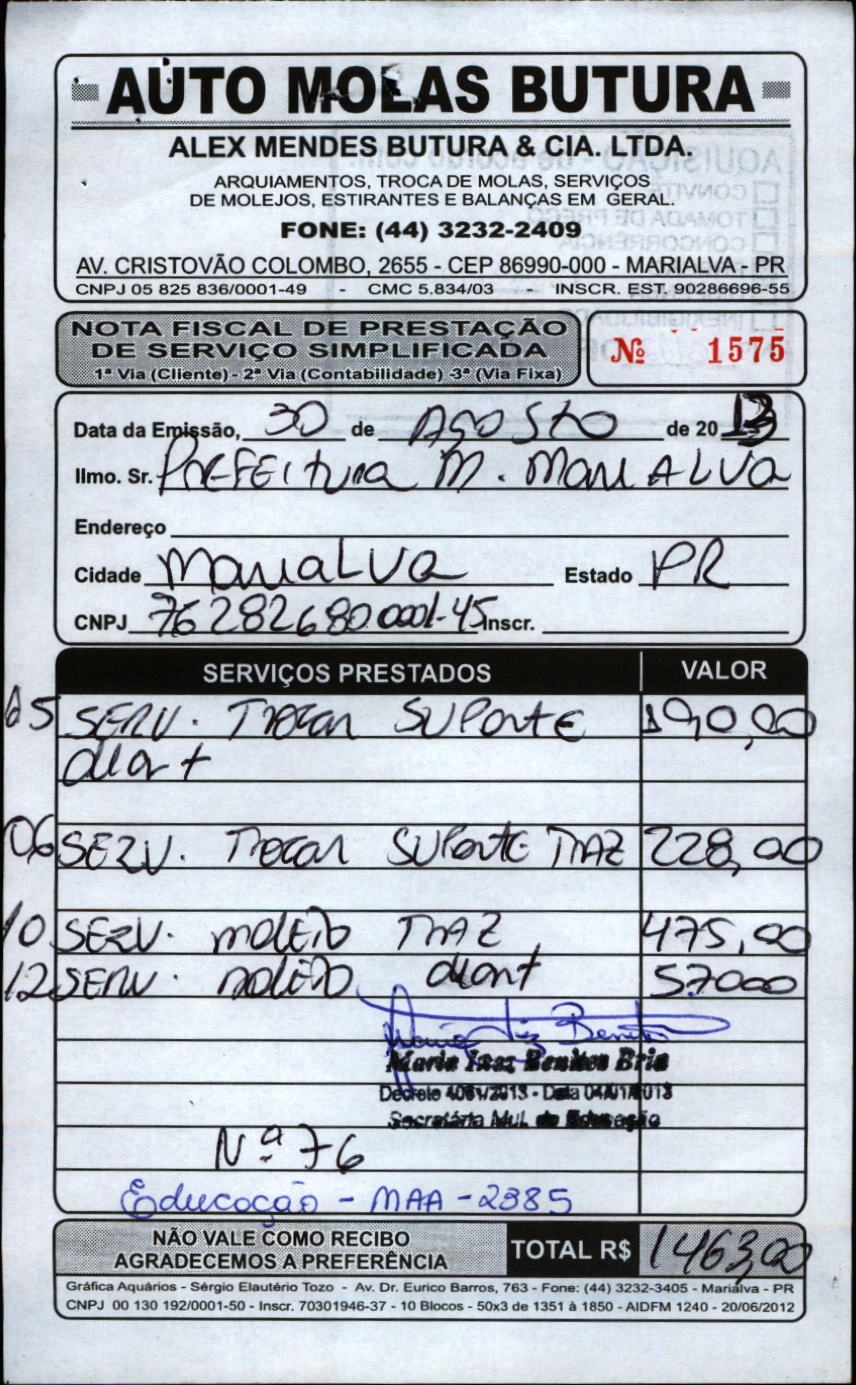 AUTO MOLAS BUTURA
ALEX MENDES BUTURA & CIA. LTDA.
ARQUIAMENTOS, TROCA DE MOLAS, SERVIÇOS
DE MOLEJOS, ESTIRANTES E BALANÇAS EM GERAL.
FONE: (44) 3232-2409
AV. CRISTOVÃO COLOMBO, 2655 - CEP 86990-000 - MARIALVA - PR
CNPJ 05 825 836/0001-49 - CMC 5.834/03 - INSCR. EST. 90286696-55
NOTA FISCAL DE PRESTAÇÃO
DE SERVIÇO SIMPLIFICADA
1ª Via (Cliente) - 2ª Via (Contabilidade) -3ª (Via Fixa)
Nº 1575
Data da Emissão, 30 de AgOSTO de 2013
Ilmo. Sr. PREFEITURA M. MARIALVA
Endereço
Cidade MARIALVA Estado PR
CNPJ 76282680.0001-45 Inscr.
SERVIÇOS PRESTADOS VALOR
05 SERV. TROCAR SUPORTE 190,00
diant
06 SERV. TROCAR SUPORTE TRAZ 228,00
10 SERV. MOLEJO TRAZ 475,00
12 SERV. MOLEJO diant 57000
Decreto 4061/2013 - Data 04/01/2013
Secretária Mul. de Educação
Nº 76
Educação - MAA - 2385
NÃO VALE COMO RECIBO
AGRADECEMOS A PREFERÊNCIA
TOTAL R$ 1463,00
Gráfica Aquários - Sérgio Elautério Tozo - Av. Dr. Eurico Barros, 763 - Fone: (44) 3232-3405 - Marialva - PR
CNPJ 00 130 192/0001-50 - Inscr. 70301946-37 - 10 Blocos - 50x3 de 1351 à 1850 - AIDFM 1240 - 20/06/2012